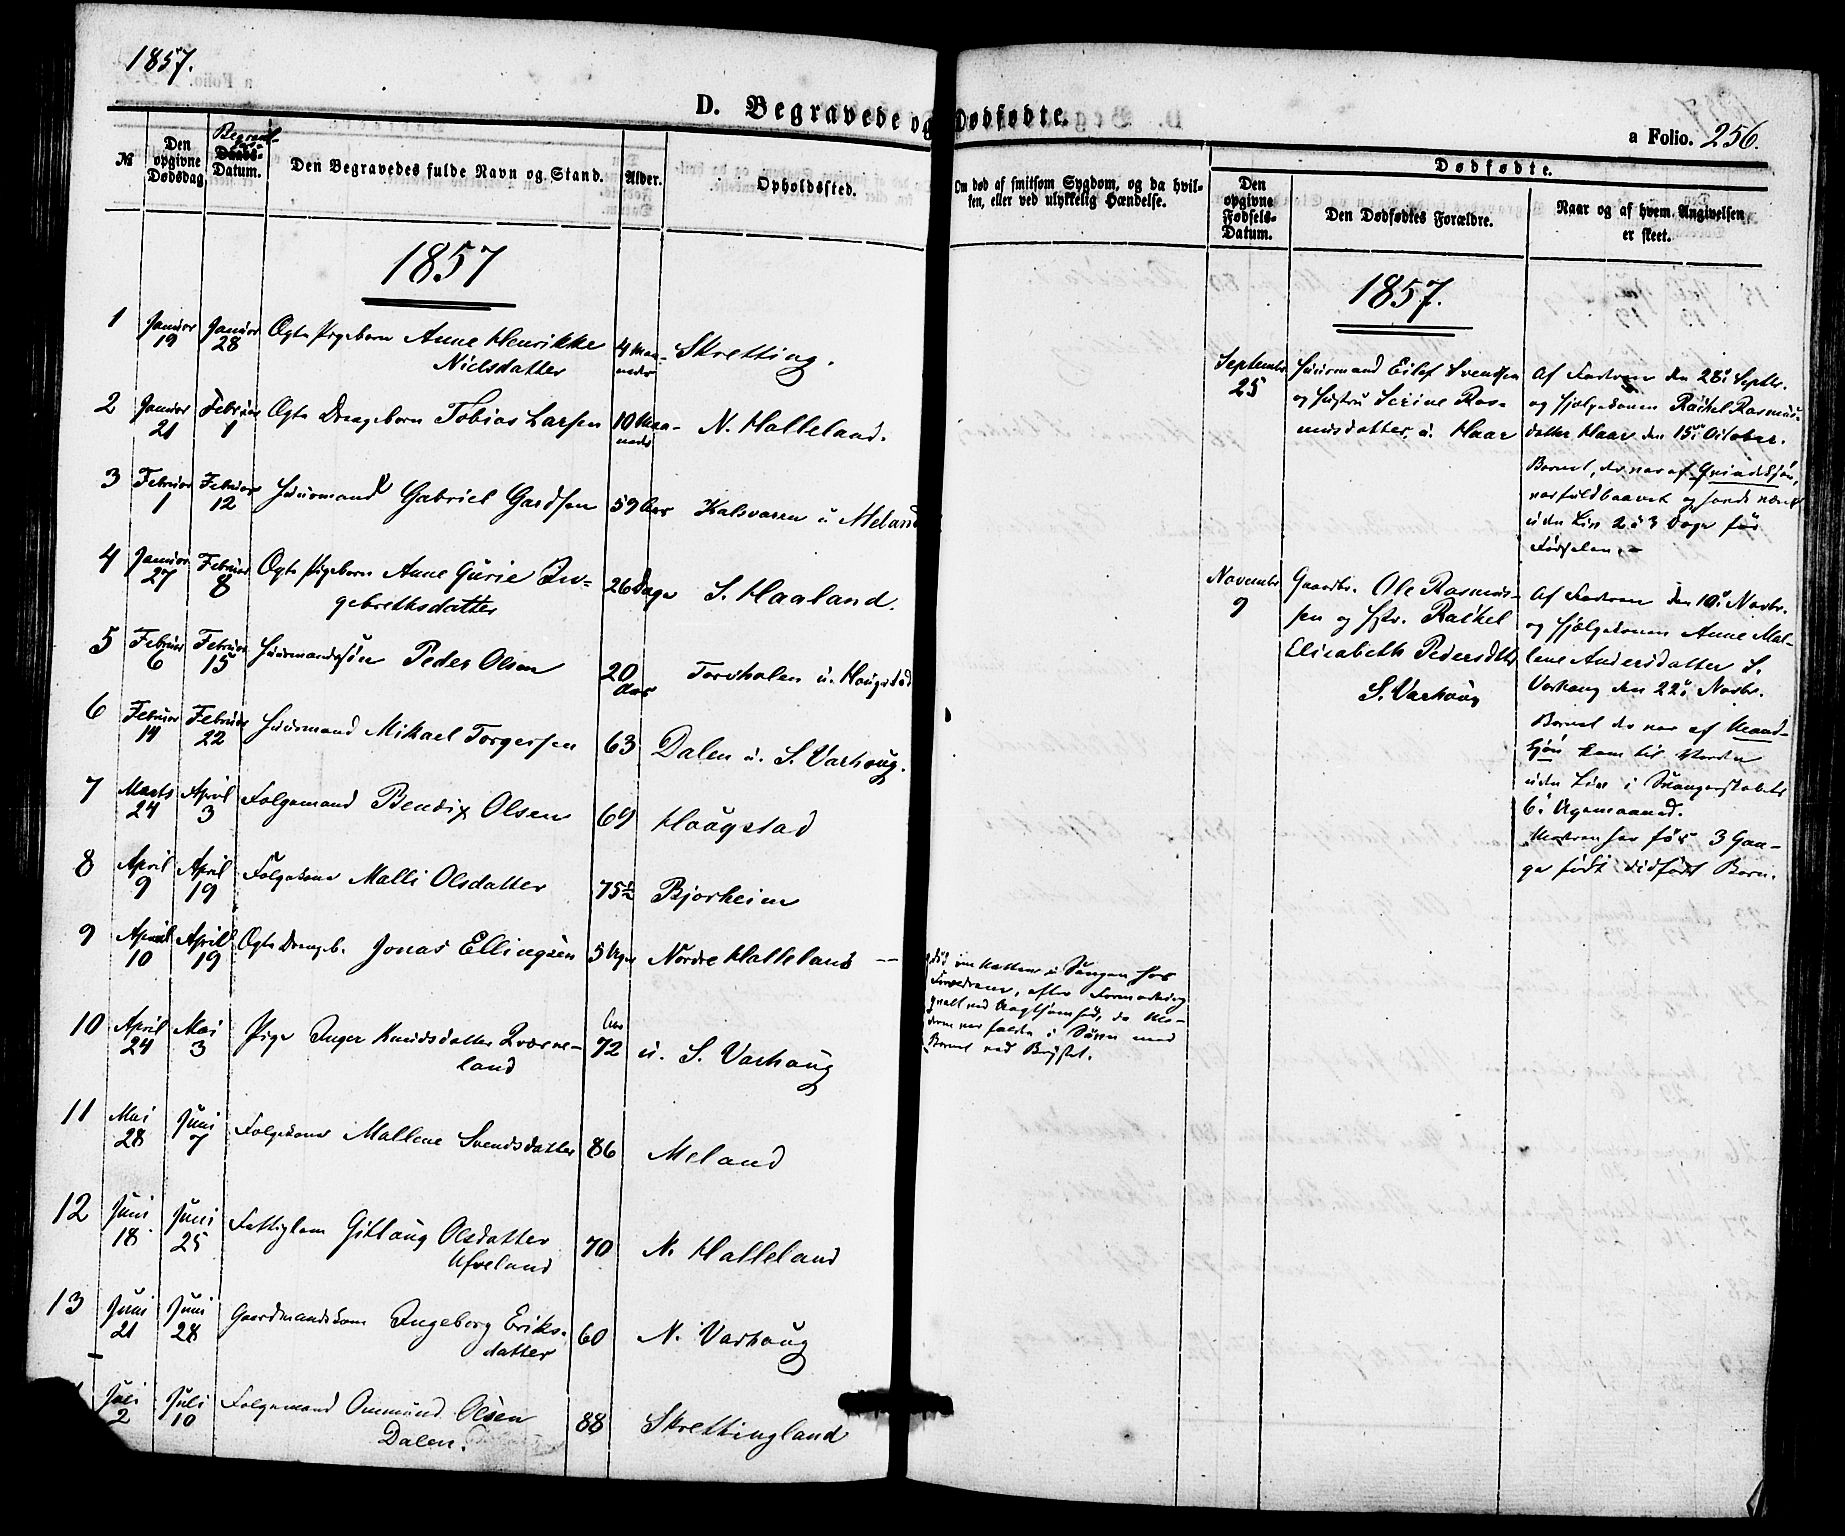 1857.
D. Begravede og Dødfødte.
a Folio. 256.
№
Den opgivne Dødsdag
Begravelses-Datum.
Den Begravedes fulde Navn og Stand.
Alder.
Opholdssted.
Om død af smitsom Sygdom, og da hvilken, eller ved ulykkelig Hændelse.
Dødfødte.
Den opgivne Fødsels-Datum.
Den Dødfødtes Forældre.
Naar og af hvem Angivelsen er skeet.
1857
1 Januar 19 Januar 28 Ægte Pigebarn Anne Henrikke 4 Maa- Skretting.
Nielsdatter neder
2 Januar 21 Februar 1 Ægte Drengebarn Tobias Larsen 10 Maaneder N. Halleland.
3 Februar 1 Februar 12 Huusmand Gabriel Gardsen 59 Aar Kalvaren u. Meland
4 Januar 27 Februar 8 Ægte Pigebarn Anne Gurie In- 26 Dage S. Haaland.
gebrethsdatter
5 Februar 6 Februar 15 Huusmandssøn Peder Olsen 20 Aar Torvholen u. Haugstad
6 Februar 14 Februar 22 Huusmand Mikael Torgersen 63 Dalen u. S. Varhoug.
7 Marts 24 April 3 Folgemand Bendix Olsen 69 Haugstad
8 April 9 April 19 Folgekone Malli Olsdatter 75 Bjorheim
9 April 10 April 19 Ægte Drengeb. Jonas Ellingsen 5 Uger Nordre Halleland —
død om Natten i Sengen hos
Forældrene, efter Formodning
qualt ved Uagtsomhed, da Mo-
deren var falden i Søvn med
Barnet ved Brystet.
10 April 24 Mai 3 Pige Inger Knudsdatter Qværne- Aar 72 u. S. Varhaug
land
11 Mai 28 Juni 7 Folgekone Mallene Svendsdatter 86 Meland
12 Juni 18 Juni 25 Fattiglem Gitlaug Olsdatter 70 N. Halleland
13 Juni 21 Juni 28 Gaardmandskone Ingeborg Eriks- 60 N. Varhaug
datter
Juli 2 Juli 10 Folgemand Ommund Olsen 88 Skrettingland
Dalen.
1857.
September 25
Huusmand Eilef Svendsen
og Hustru Serine Ras-
musdatter, u. Haar
Af Faderen den 28de Septbr.
og Hjælpekonen Rachel Rasmus-
datter Haar den 15de October.
Barnet, der var af Qvindekjøn,
var fuldbaaret og havde været
uden Liv 2 á 3 Dage før
Fødselen.—
November 9
Gaardbr. Ole Rasmus-
sen og Hstr. Rachel
Elisabeth Pedersdtr
S. Varhaug
Af Faderen den 10de Novbr.
og Hjælpekonen Anne Mal-
lene Andersdatter S.
Varhaug den 22de Novbr.
Barnet der var af Mand-
kjøn kom til Verden
uden Liv i Svangerskabets
6te Ugemaaned.
Moderen har før 3 Gan-
ge født dødfødt Barn.